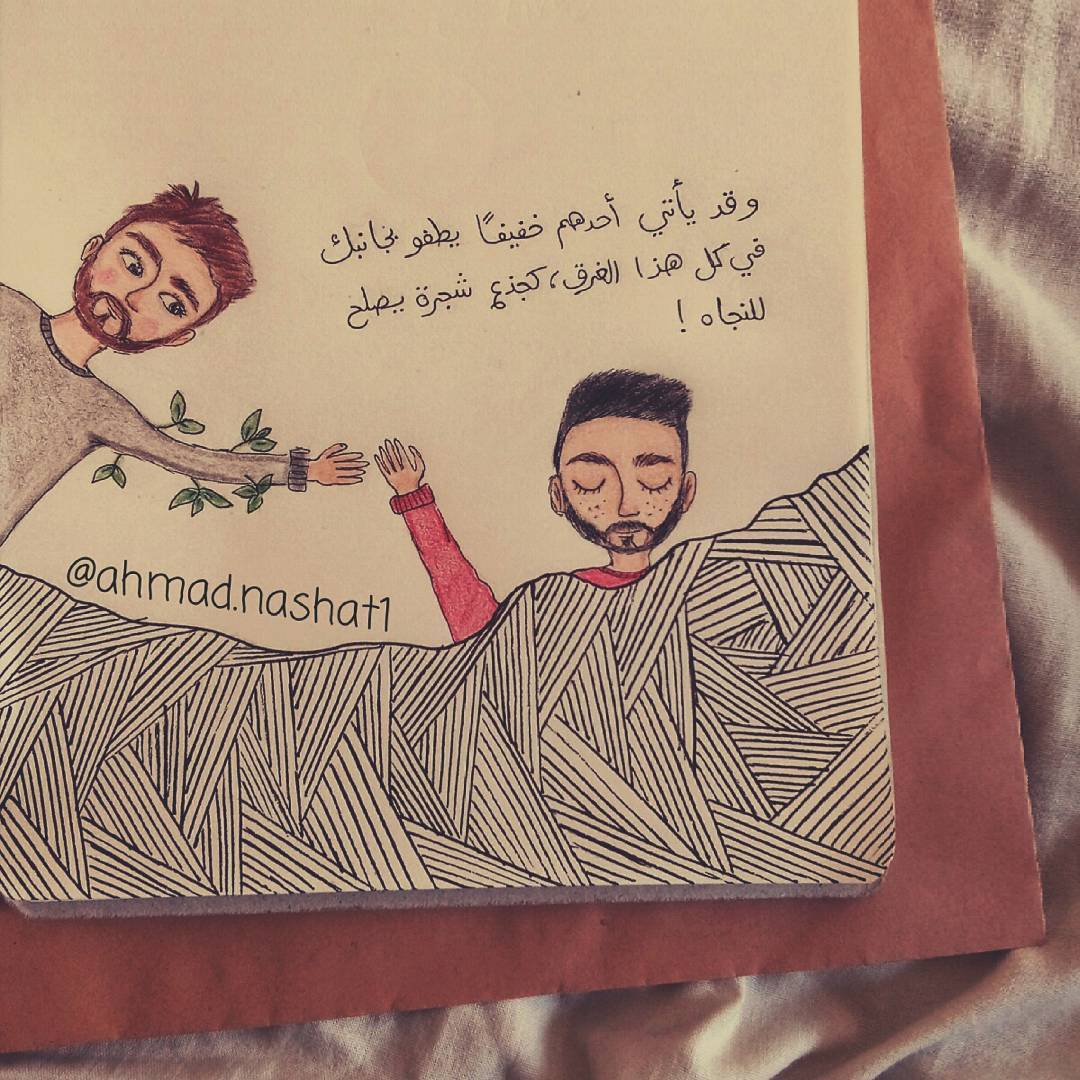 وقد يأتي أحدهم خفيفًا يطفو بجانبك
في كل هذا الغرق، كجذع شجرة يصلح
للنجاه !
@ahmad.nashat1